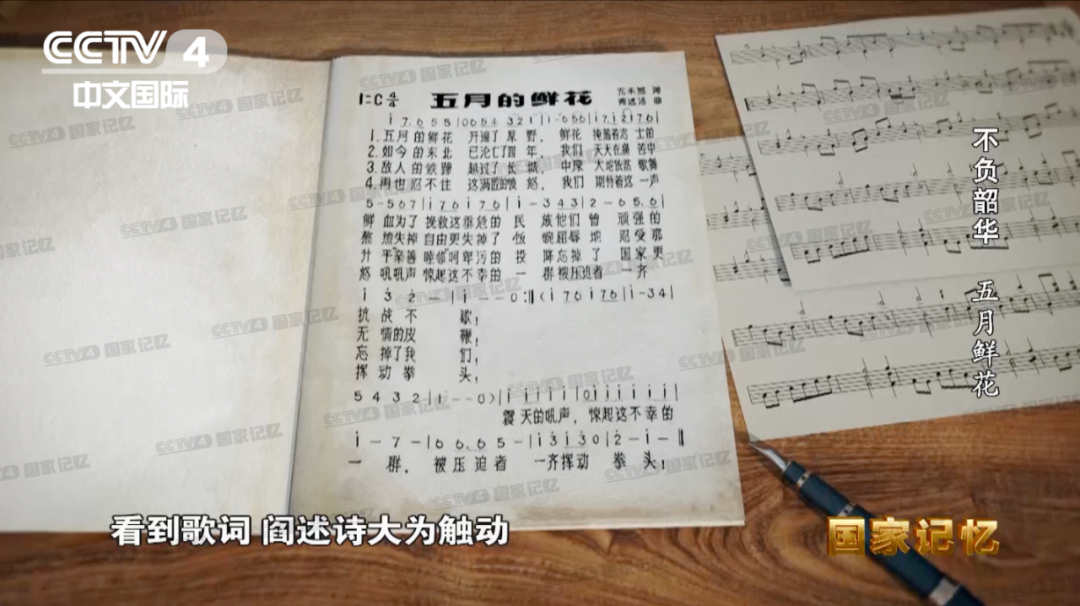 CCTV 4
中文国际
1=C 4/4 五月的鲜花 光未然 词
阎述诗 曲
1.五月的鲜花 开遍了原野， 鲜花 掩盖着志士的
2.如今的东北 已沦亡了四年， 我们 天天在痛苦中
3.敌人的铁蹄 越过了长城， 中原 大地依然歌舞
4.再也忍不住 这满腔的愤怒， 我们 期待着这一声
5-567|i76i76|i-343|2-65.6|
鲜 血为了 挽救这垂危的 民 族他们曾 顽强的
熬 煎失掉 自由更失掉了 饭 碗屈辱地 忍受那
升 平"亲善睦邻"呵卑污的 投 降忘掉了 国家更
怒 吼吼声 惊起这不幸的 一 群被压迫者 一齐
i 3 2-|i--0:‖(i76i76|i-34|
抗 战 不 歇；
无 情的皮 鞭；
忘 掉了我 们；
挥 动 拳 头；
5432|1--0)|iiiii0i|iiiiii|
震 天的吼声， 惊起这不幸的
i-7-|66.65-|i3i30|2-i-‖
一 群， 被压迫者 一齐挥动 拳 头；
不负韶华 五月鲜花
看到歌词 阎述诗大为触动
国家记忆